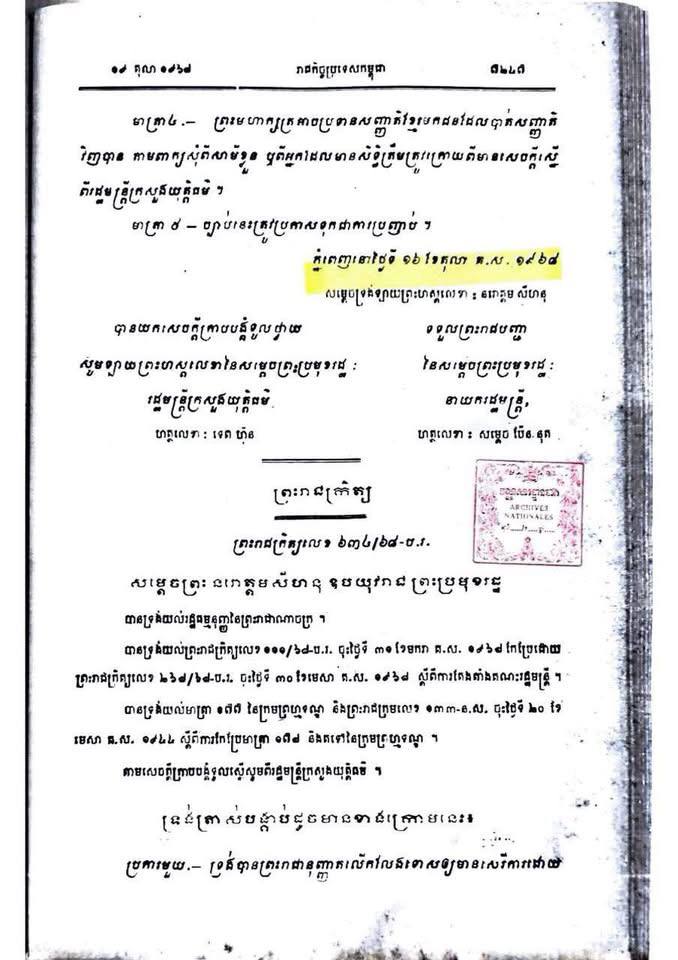 ១៩ តុលា ១៩៦៨ រាជកិច្ចប្រទេសកម្ពុជា ៨២៤៧
មាត្រា៤.— ព្រះមហាក្សត្រអាចប្រទានសញ្ជាតិខ្មែរមកជនដែលបាត់សញ្ជាតិ
វិញបាន តាមពាក្យសុំពីសាមីខ្លួន ឬពីអ្នកដែលមានសិទ្ធិត្រឹមត្រូវក្រោយពីមានសេចក្តីស្នើ
ពីរដ្ឋមន្ត្រីក្រសួងយុត្តិធម៌ ។
មាត្រា ៥ — ច្បាប់នេះត្រូវប្រកាសទុកជាការប្រញាប់ ។
ភ្នំពេញនៅថ្ងៃទី ១៦ ខែតុលា គ.ស. ១៩៦៨
សម្តេចទ្រង់ឡាយព្រះហស្តលេខា : នរោត្តម សីហនុ
បានយកសេចក្តីក្រាបបង្គំទូលថ្វាយ ទទួលព្រះរាជបញ្ជា
សូមឡាយព្រះហស្តលេខានៃសម្តេចព្រះប្រមុខរដ្ឋ : នៃសម្តេចព្រះប្រមុខរដ្ឋ :
រដ្ឋមន្ត្រីក្រសួងយុត្តិធម៌ នាយករដ្ឋមន្ត្រី,
ហត្ថលេខា : ទេព ហ៊ុន ហត្ថលេខា : សម្តេច ប៉ែន-នុត
ព្រះរាជក្រឹត្យ
ARCHIVES
NATIONALES
ព្រះរាជក្រឹត្យលេខ ៦៣៤/៦៨-ប.រ.
សម្តេចព្រះ នរោត្តមសីហនុ ឧបយុវរាជ ព្រះប្រមុខរដ្ឋ
បានទ្រង់យល់រដ្ឋធម្មនុញ្ញនៃព្រះរាជាណាចក្រ ។
បានទ្រង់យល់ព្រះរាជក្រឹត្យលេខ ១១១/៦៨-ប.រ. ចុះថ្ងៃទី ៣១ ខែមករា គ.ស. ១៩៦៨ កែប្រែដោយ
ព្រះរាជក្រឹត្យលេខ ២៦៨/៦៨-ប.រ. ចុះថ្ងៃទី ៣០ ខែមេសា គ.ស. ១៩៦៨ ស្តីពីការតែងតាំងគណះរដ្ឋមន្ត្រី ។
បានទ្រង់យល់មាត្រា ១៧៧ នៃក្រមព្រហ្មទណ្ឌ និងព្រះរាជក្រមលេខ ១៣៣-ន.ស. ចុះថ្ងៃទី ២០ ខែ
មេសា គ.ស. ១៩៤៤ ស្តីពីការកែប្រែមាត្រា ១៧៨ និងតទៅនៃក្រមព្រហ្មទណ្ឌ ។
តាមសេចក្តីក្រាបបង្គំទូលស្នើសូមពីរដ្ឋមន្ត្រីក្រសួងយុត្តិធម៌ ។
ទ្រង់ត្រាស់បង្គាប់ដូចមានខាងក្រោមនេះ៖
ប្រការមួយ.— ទ្រង់បានព្រះរាជានុញ្ញាតលើកលែងទោសឲ្យមានសេរីការដោយ